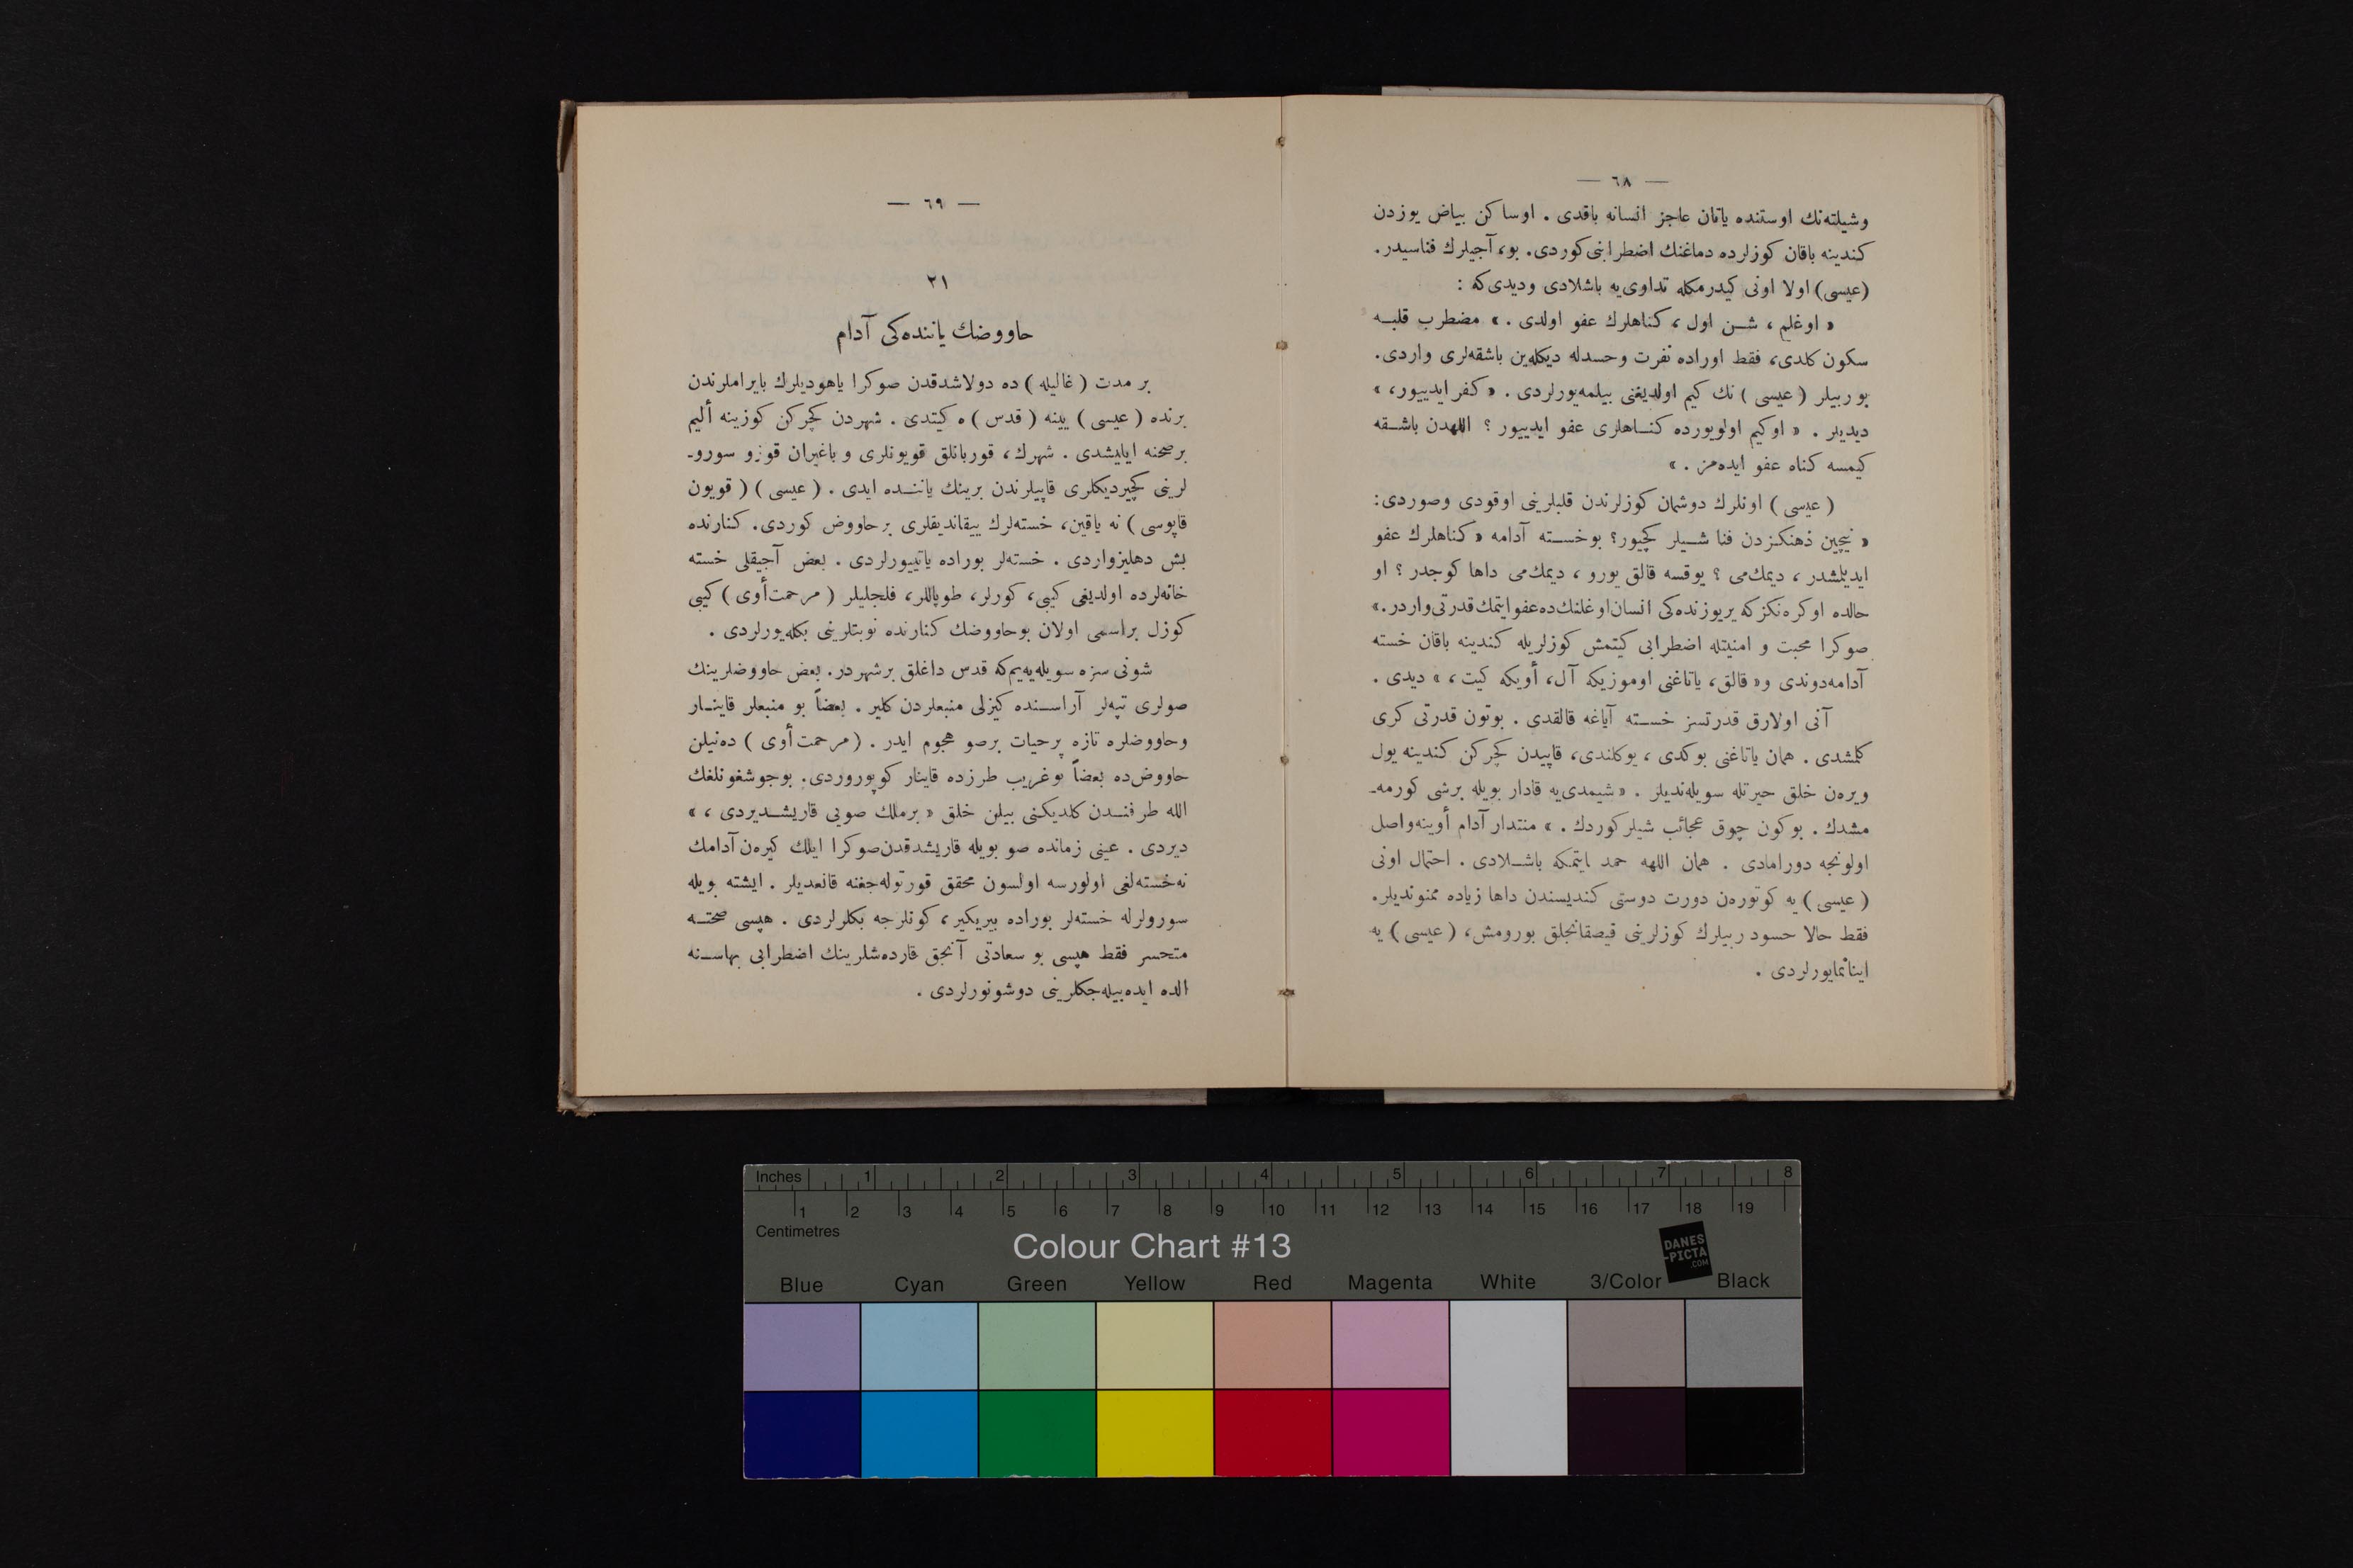 — ٦٨ —
وشیلته‌نك اوستنده یاتان عاجز انسانه باقدی . اوساكن بیاض یوزدن
كندینه باقان كوزلرده دماغنك اضطرابنی كوردی. بو، آجیلرك فناسیدر.
(عیسی) اولا اونی كیدرمكله تداوی‌یه باشلادی ودیدی‌كه :
« اوغلم ، شـن اول ، كناهلرك عفو اولدی . » مضطرب قلبـه
سكون كلدی، فقط اوراده نفرت وحسدله دیكله‌ین باشقه‌لری واردی.
بو ربیلر (عیسی) نك كیم اولدیغنی بیلمه‌یورلردی . « كفر ایدییور، »
دیدیلر . « اوكیم اولویورده كنـاهلری عفو ایدییور ؟ اللهدن باشـقه
كیمسه كناه عفو ایده‌مز . »
( عیسی ) اونلرك دوشمان كوزلرندن قلبلرینی اوقودی وصوردی:
« نیچین ذهنكزدن فنا شـیلر كچیور؟ بوخسـته آدامه « كناهلرك عفو
ایدیلمشدر ، دیمك‌می ؟ یوقسه قالق یورو ، دیمك‌می داها كوجدر ؟ او
حالده اوكره‌نكزكه یریوزنده‌كی انسان‌اوغلنك‌ده‌عفوایتمك‌قدرتی‌واردر.»
صوكرا محبت و امنیتله اضطرابی كیتمش كوزلریله كندینه باقان خسته
آدامه‌دوندی و« قالق، یاتاغنی اوموزیكه آل، أویكه كیت، » دیدی .
آنی اولارق قدرتسز خسـته آیاغه قالقدی . بوتون قدرتی كری
كلمشدی . همان یاتاغنی بوكدی ، یوكلندی، قاپیدن كچركن كندینه یول
ویره‌ن خلق حیرتله سویله‌ندیلر . « شیمدی‌یه قادار بویله برشی كورمه‌ـ
مشدك . بوكون چوق عجائب شیلركوردك . » منتدار آدام أوینه‌واصل
اولونجه دورامادی . همان اللهه حمد ایتمكه باشـلادی . احتمال اونی
( عیسی ) یه كوتوره‌ن دورت دوستی كندیسندن داها زیاده ممنوندیلر.
فقط حالا حسود ربیلرك كوزلرینی قیصقانجلق بورومش، (عیسی) یه
اینانمایورلردی .
— ٦٩ —
٢١
حاووضك یاننده‌كی آدام
بر مدت ( غالیله ) ده دولاشدقدن صوكرا یاهودیلرك بایراملرندن
برنده ( عیسی ) یینه ( قدس ) ه كیتدی . شهردن كچركن كوزینه ألیم
برصحنه ایلیشدی . شهرك، قوربانلق قویونلری و باغیران قوزو سوروـ
لرینی كچیردیكلری قاپیلرندن برینك یاننـده ایدی . ( عیسی ) ( قویون
قاپوسی ) نه یاقین، خسته‌لرك ییقاندیقلری بر حاووض كوردی. كنارنده
بش دهلیزواردی . خسته‌لر بوراده یاتییورلردی . بعض آجیقلی خسته
خانه‌لرده اولدیغی كیبی، كورلر، طوپاللر، فلجلیلر ( مرحمت‌أوی ) كیبی
كوزل براسمی اولان بوحاووضك كنارنده نوبتلرینی بكله‌یورلردی .
شونی سزه سویله‌یه‌یم‌كه قدس داغلق برشهردر. بعض حاووضلرینك
صولری تپه‌لر آراسـنده كیزلی منبعلردن كلیر . بعضاً بو منبعلر قاینـار
وحاووضلره تازه پرحیات برصو هجوم ایدر . (مرحمت‌أوی ) ده‌نیلن
حاووض‌ده بعضاً بوغریب طرزده قاینار كوپوروردی. بوجوشغونلغك
الله طرفنـدن كلدیكنی بیلن خلق « برملك صویی قاریشـدیردی ، »
دیردی . عینی زمانده صو بویله قاریشدقدن‌صوكرا ایلك كیره‌ن‌آدامك
نه‌خسته‌لغی اولورسه اولسون محقق قورتوله‌جغنه قانعدیلر . ایشته بویله
سورولرله خسته‌لر بوراده بیریكیر، كونلرجه بكلرلردی . هپسی صحتـه
متحسر فقط هپسی بو سعادتی آنجق قارده‌شلرینك اضطرابی بهاسـنه
الده ایده‌بیله‌جكلرینی دوشونورلردی .
Inches 1 2 3 4 5 6 7 8
1 2 3 4 5 6 7 8 9 10 11 12 13 14 15 16 17 18 19
Centimetres
Colour Chart #13
DANES
-PICTA
.COM
Blue Cyan Green Yellow Red Magenta White 3/Color Black